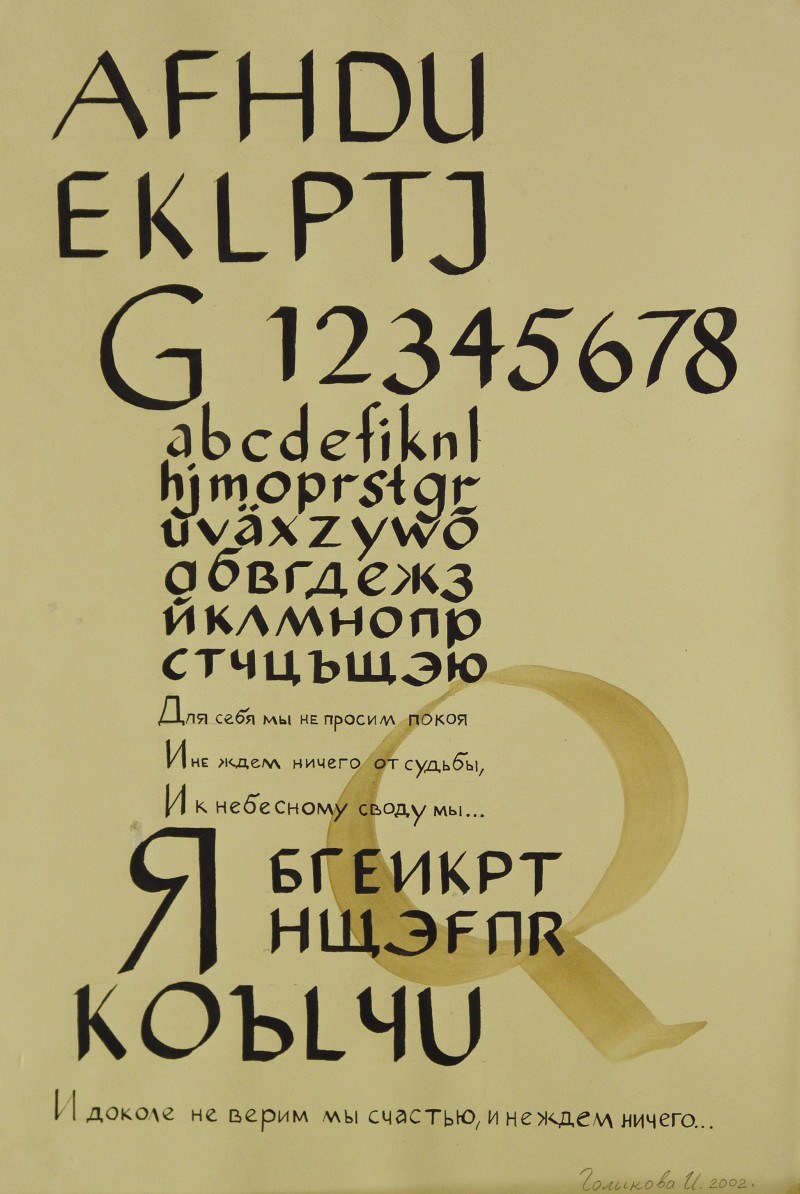 AFHDU
EKLPTJ
G 12345678
abcdefiknl
hjmoprstqr
ũväxzywõ
абвгдежз
йклмнопр
стчцъщэю
Для себя мы не просим покоя
И не ждем ничего от судьбы,
И к небесному своду мы...
Я БГЕИКРТ
НЩЭFПR
Q
КОЪLЧU
И доколе не верим мы счастью, и не ждем ничего...
Голикова И. 2002.